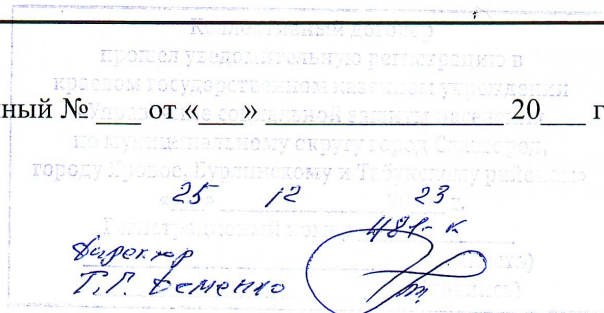 Коллективный договор
прошел уведомительную регистрацию в
краевом государственном казенном учреждении
нный № ___ от «___» __________________ 20___ г
по муниципальному округу город Славгород,
городу Яровое, Бурлинскому и Табунскому районам»
25 12 23
Регистрационный
481-К
Директор
Т.Г. Деменко